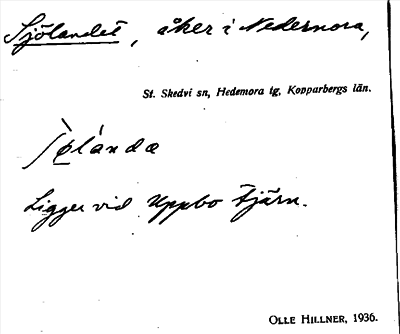 Sjölandet, åker i Nedernora,
St. Skedvi sn, Hedemora tg, Kopparbergs län.
Ligger vid Uppbo tjärn.
OLLE HILLNER, 1936.